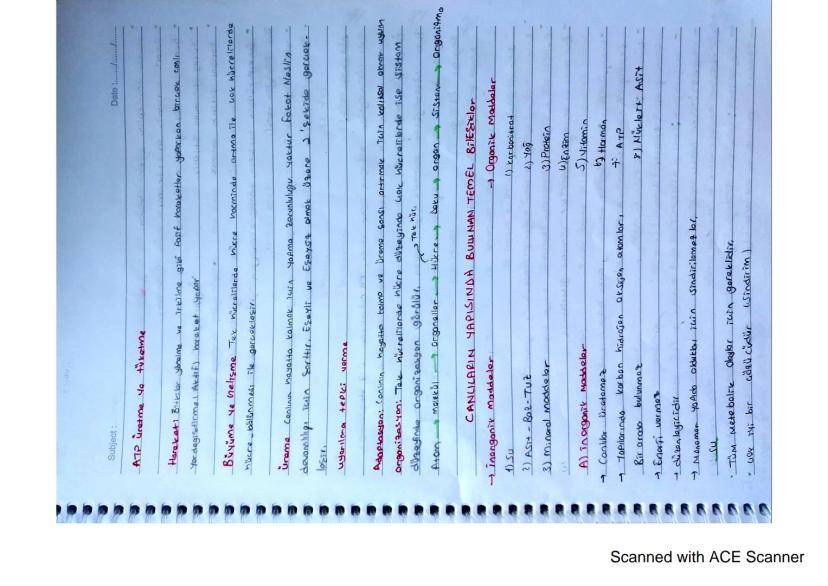 Subject :
Date : ...../...../.....
ATP üretme ve tüketme
Hareket: Bitkiler yönelme ve irkilme gibi Pasif hareketler yaparken birçok canlı
Yer değiştirme (Aktif) hareket yapar
Büyüme ve Gelişme Tek hücrelilerde hücre hacminde artma ile çok hücrelilerde
hücre bölünmesi ile gerçekleşir.
Üreme Canlının hayatta kalmak için yapma zorunluluğu yoktur Fakat Neslin
devamlılığı için Şarttır. Eşeyli ve Eşeysiz olmak üzere 2 şekilde gerçek-
leşir.
Uyarılma tepki verme
Adaptasyon: Canlının hayatta kalma ve üreme şansı artırmak için kalıtsal olarak uyum
organizasyon: Tek hücrelilerde hücre düzeyinde çok hücrelilerde ise sistem
düzeyinde organizasyon görülür.
Tek hüc.
Atom → molekül → organeller → Hücre → Doku → organ → Sistem → organizma
CANLILARIN YAPISINDA BULUNAN TEMEL BİLEŞİKLER
→ İnorganik Maddeler
1) SU
2) Asit - Baz - Tuz
3) mineral maddeler
→ Organik Maddeler
1) karbonhidrat
2) Yağ
3) Protein
4) Enzim
5) Vitamin
6) Hormon
7) ATP
8) Nükleik Asit
A) İnorganik Maddeler
→ Canlılar üretemez
→ Yapılarında karbon hidrojen oksijen atomları,
Bir arada bulunmaz
→ Enerji vermez
→ düzenleyicidir
→ Monomer yapıda olduklarından için sindirilemezler.
SU
· Tüm metabolik olaylar için gereklidir.
· çok iyi bir çözücüdür (sindirim)
Scanned with ACE Scanner